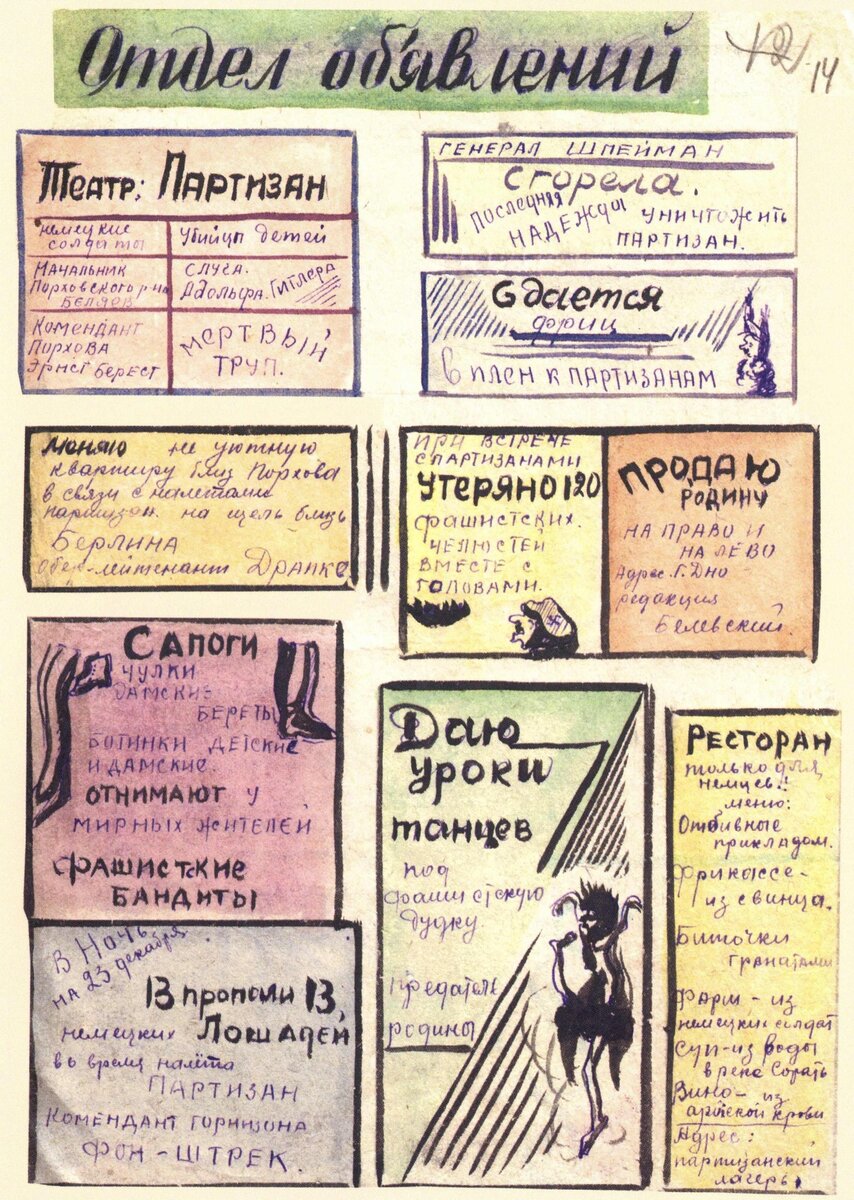 Отдел объявлений
14
Театр: Партизан
немецкие солдаты
убийцы детей
Начальник
Порховского р-на
Беляев
слуга.
Адольфа. Гитлера
Комендант
Порхова
Эрнст Берест
мертвый
труп.
Генерал Шпейман
Сгорела.
Последняя
надежда уничтожить
партизан.
Сдается
фриц
в плен к партизанам
Меняю не уютную
квартиру близ Порхова
в связи с налетами
партизан. на щель близь
Берлина
обер-лейтенант Драпке
При встрече
с партизанами
утеряно 120
фашистских.
челюстей
вместе с
головами.
Продаю
родину
на право и
на лево
Адрес. г. Дно -
редакция
Белевский
Сапоги
чулки
дамские
береты
ботинки детские
и дамские.
отнимают у
мирных жителей
фашистские
бандиты
В ночь
на 23 декабря
13 пропали 13,
немецких Лошадей
во время налёта
партизан
комендант горнизона
фон-Штрек.
Даю
уроки
танцев
под
фашистскую
дудку
предатели
родины
Ресторан
только для
немцев!!
меню:
Отбивные
прикладом.
Фрикассе-
из свинца.
Биточки
гранатами
Фарш - из
немецких солдат
Суп-из воды
в реке Сорать
Вино - из
арийской крови
Адрес:
партизанский
лагерь